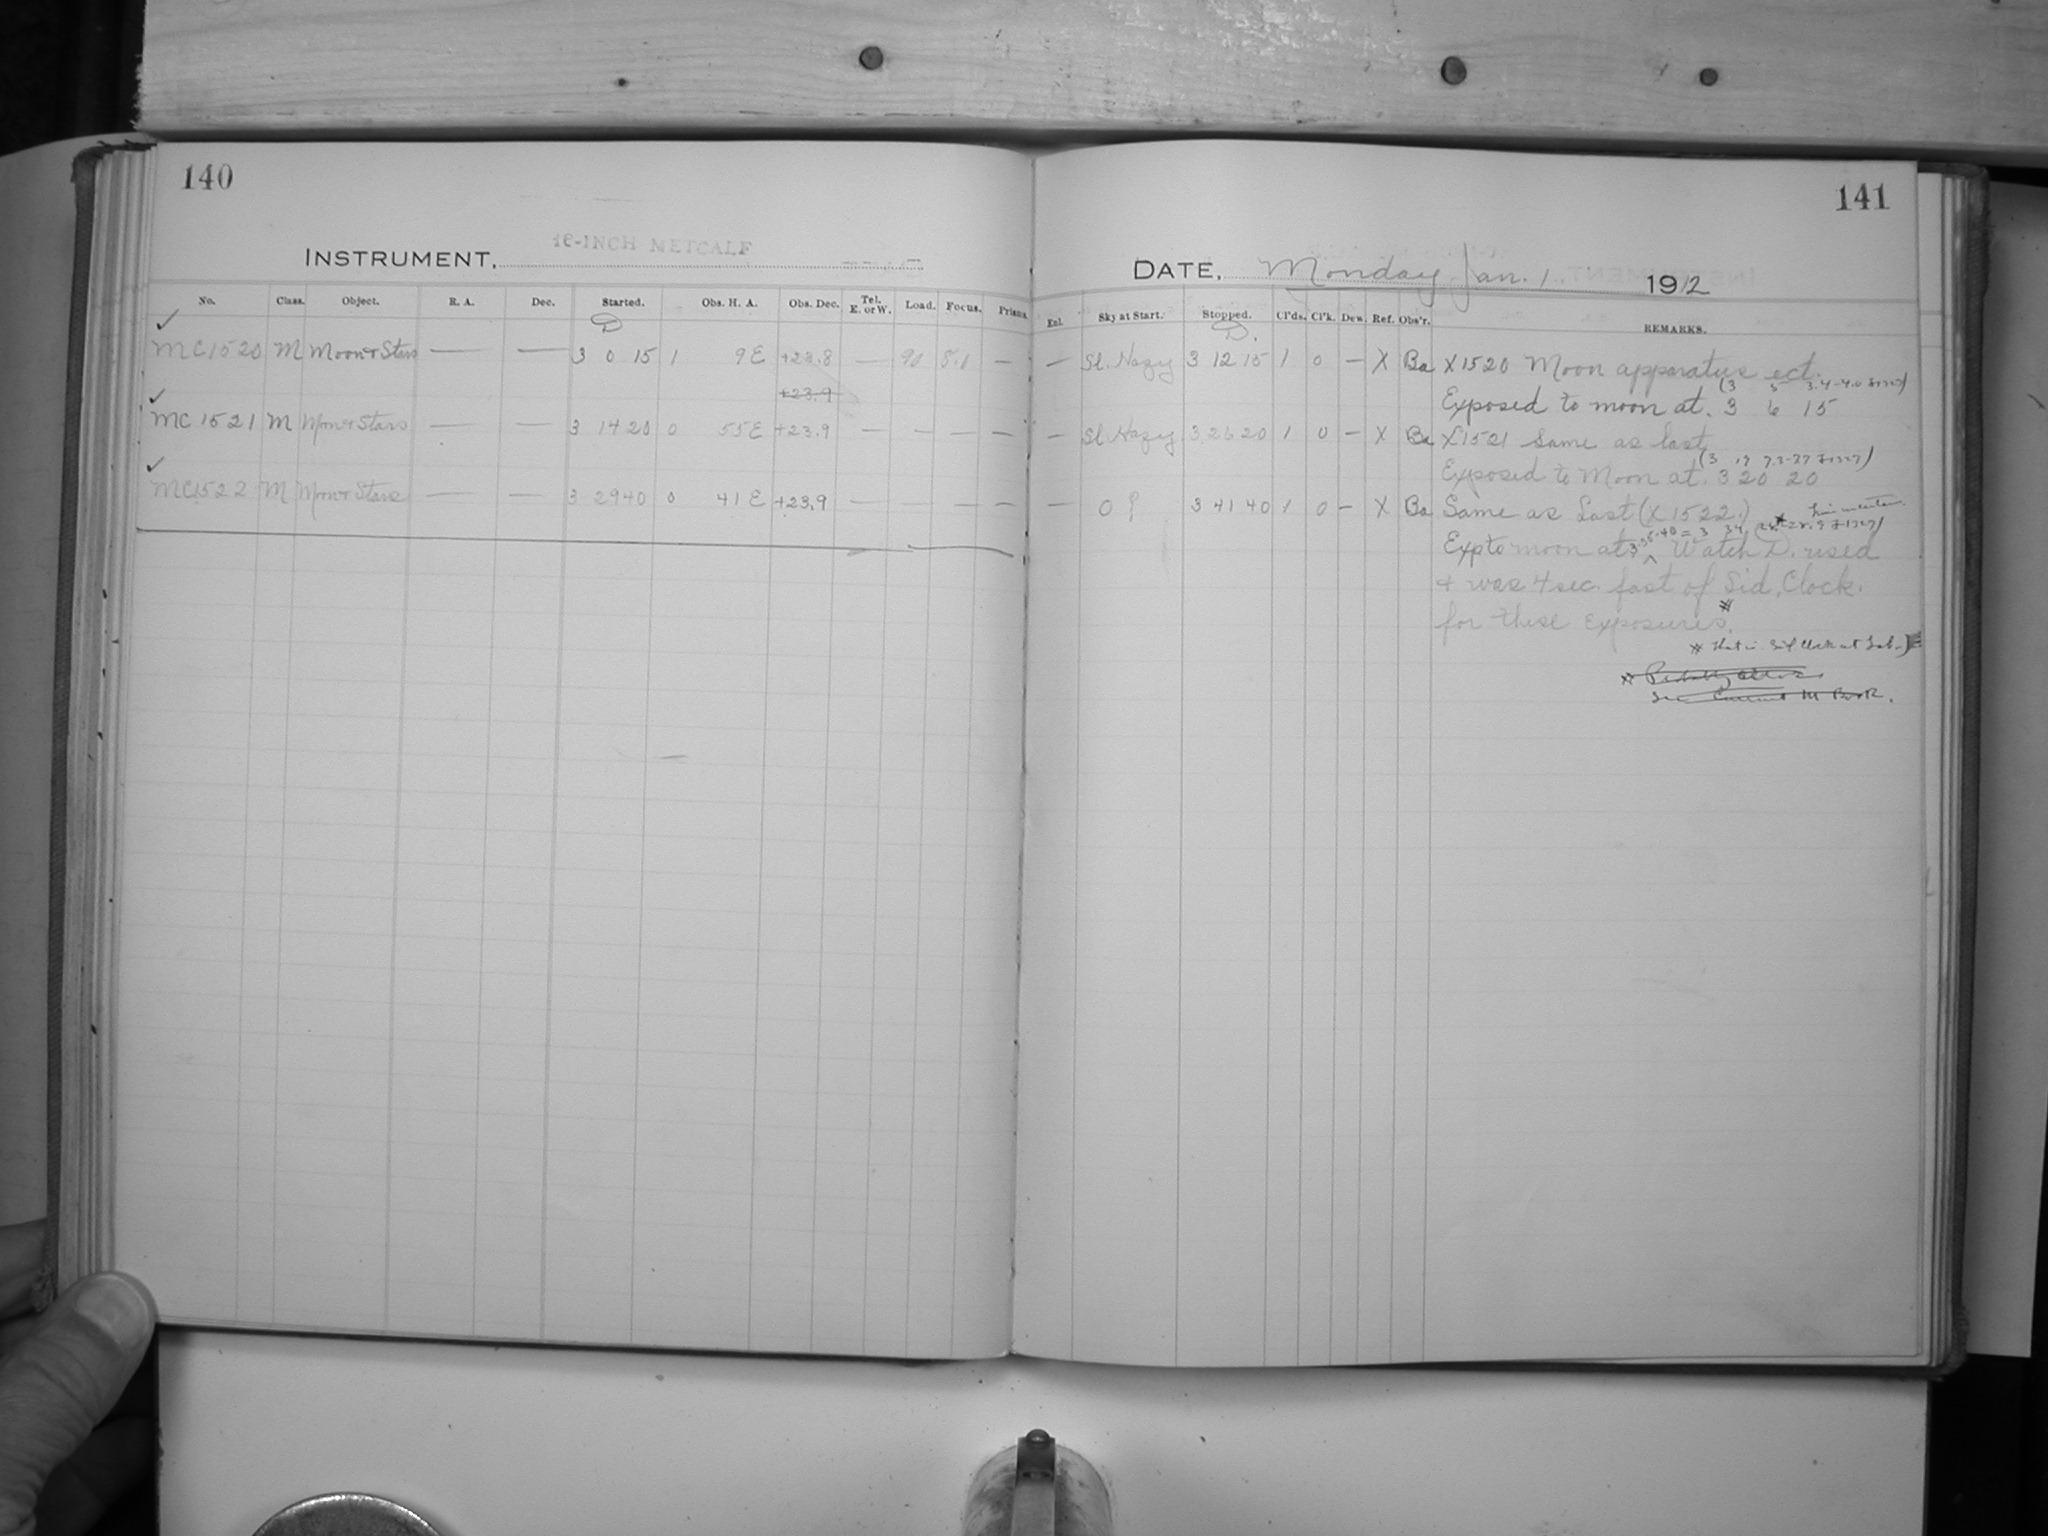 140
INSTRUMENT, 16-INCH METCALF
No. Class. Object. R. A. Dec. Started. Obs. H. A. Obs. Dec. Tel. E. or W. Load. Focus. Prism.
D
✓
MC1520 M Moon & Stars — — 3 0 15 1 9 E +23.8 — 90 8.0 —
+23.9
✓
MC 1521 M Moon & Stars — — 3 14 20 0 55 E +23.9 — — — —
✓
MC1522 M Moon & Stars — — 3 29 40 0 41 E +23.9 — — — —
141
DATE, Monday Jan. 1 1912
Enl. Sky at Start. Stopped. Cl'ds. Cl'k. Dew. Ref. Obs'r. REMARKS.
D.
— Sl. Hazy 3 12 15 1 0 — X Ba X1520 Moon apparatus ect.
Exposed to moon at. 3 6 15
— Sl. Hazy 3 26 20 1 0 — X Ba X1521 Same as last
Exposed to Moon at. 3 20 20
— 3 41 40 1 0 — X Ba Same as Last (X1522.)
Exp to moon at 3 35 40 = 3 34 Watch D. used
& was 4 sec. fast of Sid. Clock.
for these exposures.